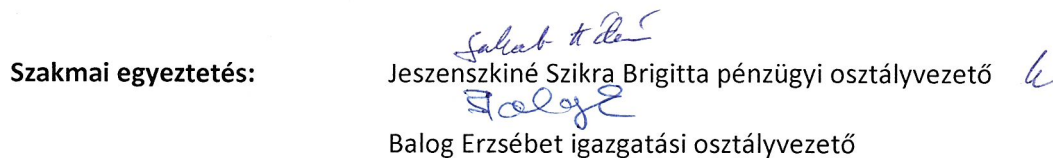 Szakmai egyeztetés: Jeszenszkiné Szikra Brigitta pénzügyi osztályvezető
Balog E
Balog Erzsébet igazgatási osztályvezető